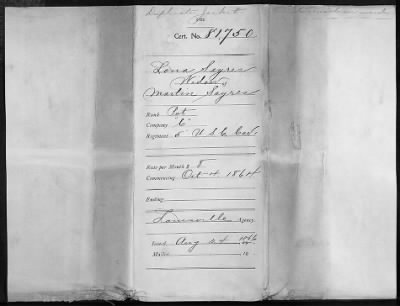 Duplicate Jacket
Cert. No. 81,750
Lona Sayres
Widow
Martin Sayres
Rank Pvt
Company "C"
Regiment 5" U S C Cav.
Rate per Month $ 8
Commencing Oct 4 1864
Ending
Louisville Agency.
Issued Aug 24 1866
Mailed 18